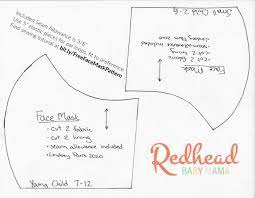 Included Seam Allowance is 3/8"
Use 5" elastic pieces for ear loops, + to preference
Find sewing tutorial at bit.ly/FreeFaceMaskPattern
Small Child 2-6
Face Mask
- cut 2 fabric
- cut 2 lining
- seam allowance included
- Lindsay Paris 2020
Face Mask
- cut 2 fabric
- cut 2 lining
- seam allowance included
- Lindsay Paris 2020
Young Child 7-12
Redhead
BABY MAMA